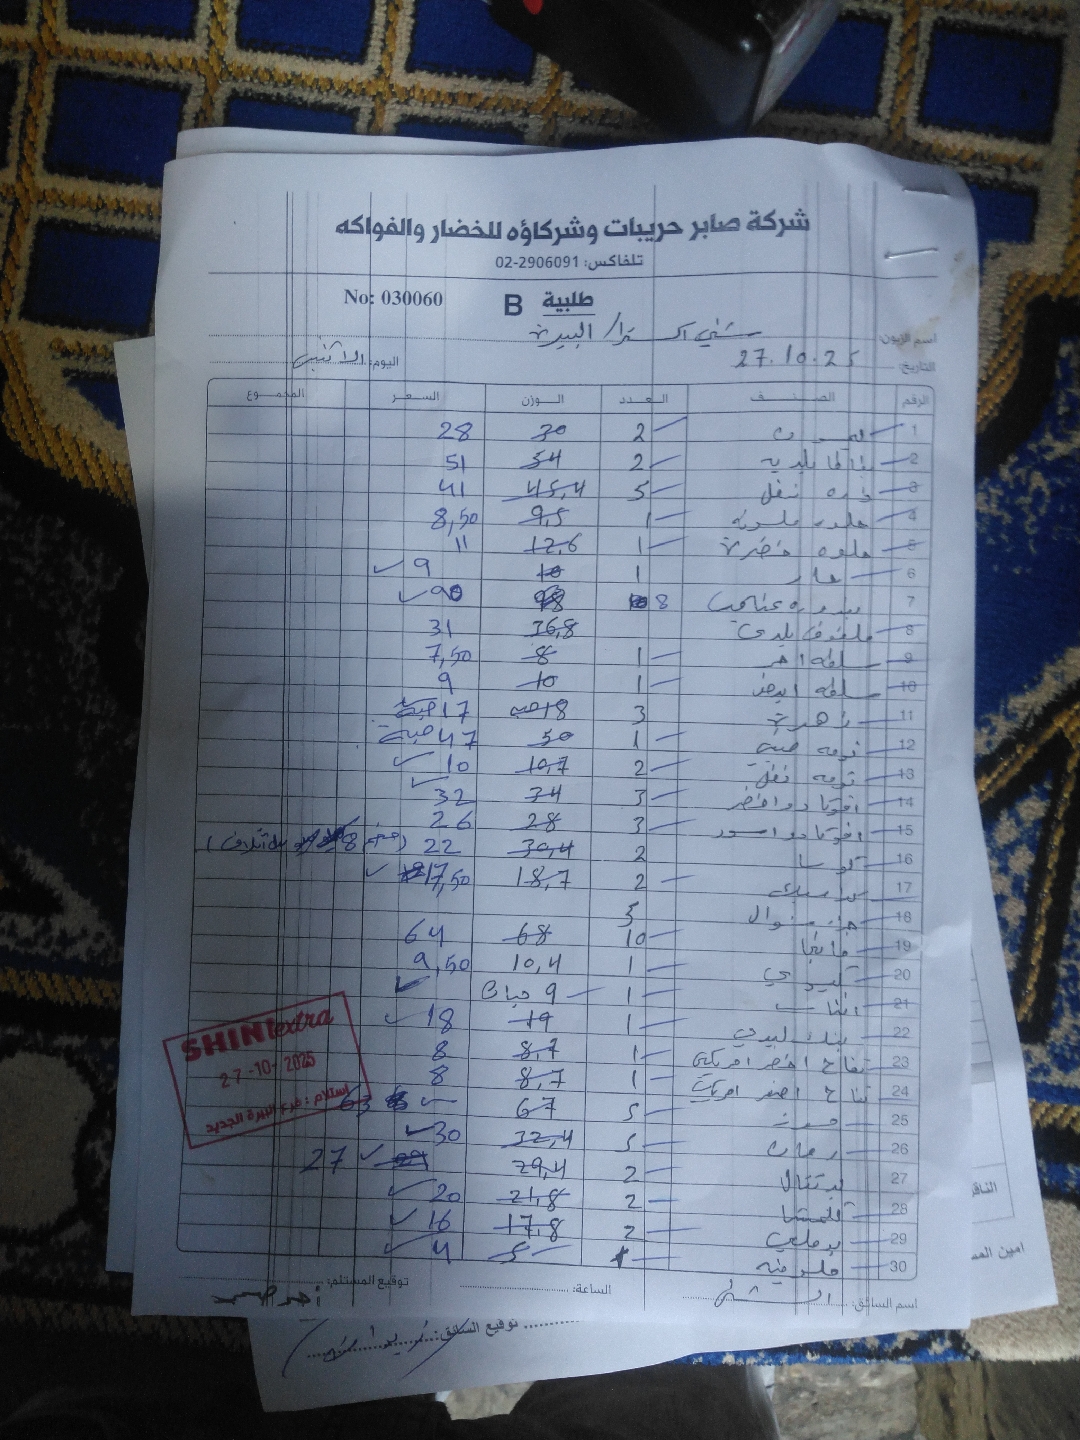 شركة صابر حريبات وشركاؤه للخضار والفواكه
تلفاكس: 02-2906091
No: 030060 طلبية B
اسم الزبون: شني اكسترا/ البيرة
التاريخ: 27.10.25 اليوم: الاثنين
الرقم الصنف العدد الوزن السعر المجموع
1 ليمون 2 30 28
2 بطاطا بلديه 2 54 51
3 نفل 5 45,4 41
4 حلوه ملونه 1 9,5 8,50
5 حلوه خضرة 1 12,6 11
6 حار 1 10 9
7 بندوره 8 90
8 ملفوف بلدي 36,8 31
9 سلطه احمر 1 8 7,50
10 سلطه ابيض 1 10 9
11 زهرة 3 18 حبه 17 حبة
12 تومه حبة 1 50 47 حبة
13 تومه نفل 2 10,7 10
14 افوكادو اخضر 3 34 32
15 افوكادو اسود 3 28 26
16 كوسا 2 30,4 22
17 2 18,7 17,50
18 5
19 10 68 64
20 1 10,4 9,50
21 اناناس 1 9 حبات
22 ليدي 1 19 18
23 تفاح اخضر امريكي 1 8,7 8
24 تفاح اصفر امريكي 1 8,7 8
25 موز 5 67 63
26 رمان 5 32,4 30
27 برتقال 2 29,4 27
28 كلمنتينا 2 21,8 20
29 2 17,8 16
30 1 5 4
SHINI extra
27-10-2025
استلام : فرع البيرة الجديد
اسم السائق: الساعة: توقيع المستلم:
توقيع السائق: